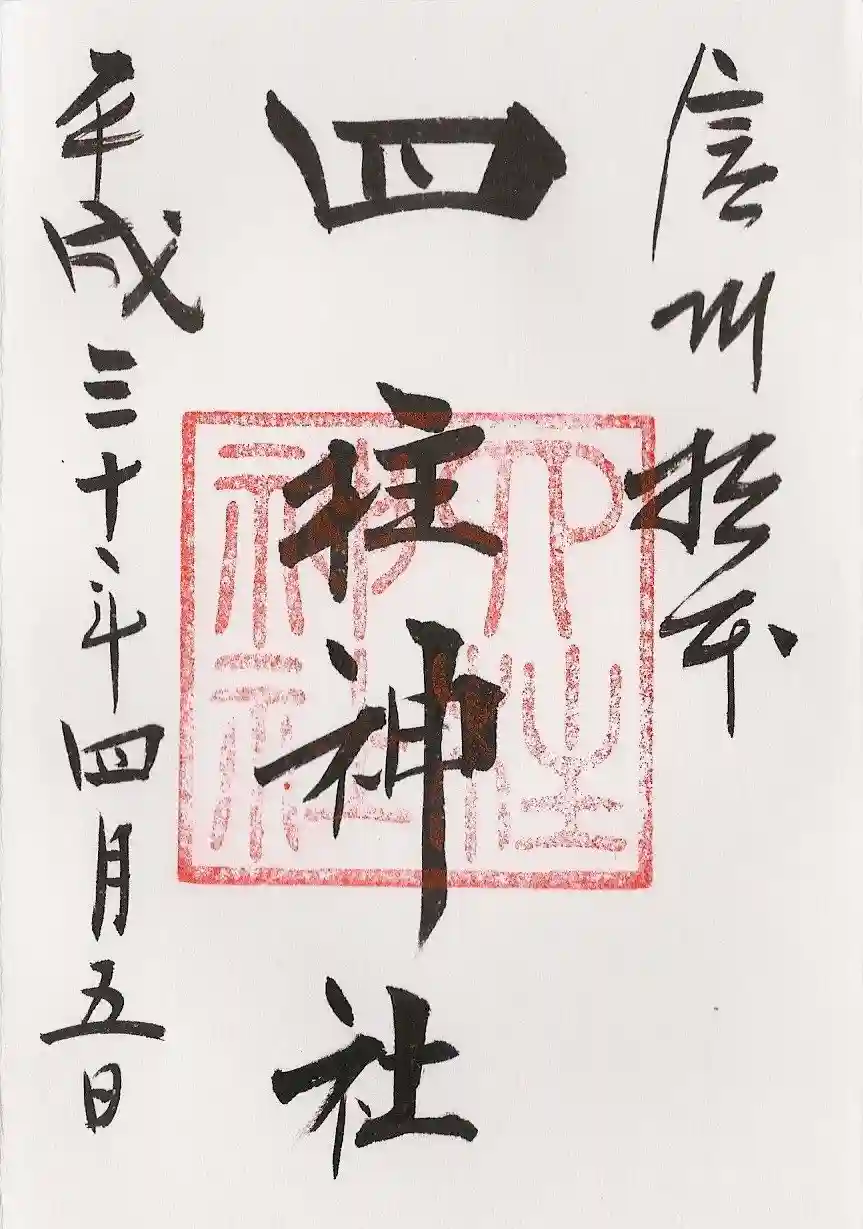 信州松本
四柱神社
四柱神社
平成三十年四月五日